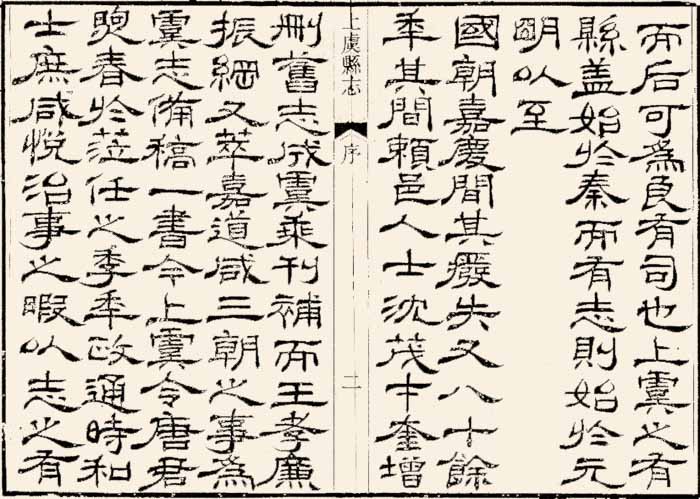 而后可為良有司也上虞之有
縣盖始於秦而有志則始於元
明以至
國朝嘉慶間其癈失又八十餘
年其間頼邑人士沈茂才奎增
上虞縣志 序 二
刪舊志成虞乘刊補而王孝廉
振綱又萃嘉道咸三朝之事為
虞志備稿一書今上虞令唐君
煦春於蒞任之季年政通時和
士庶咸悅治事之暇以志之有